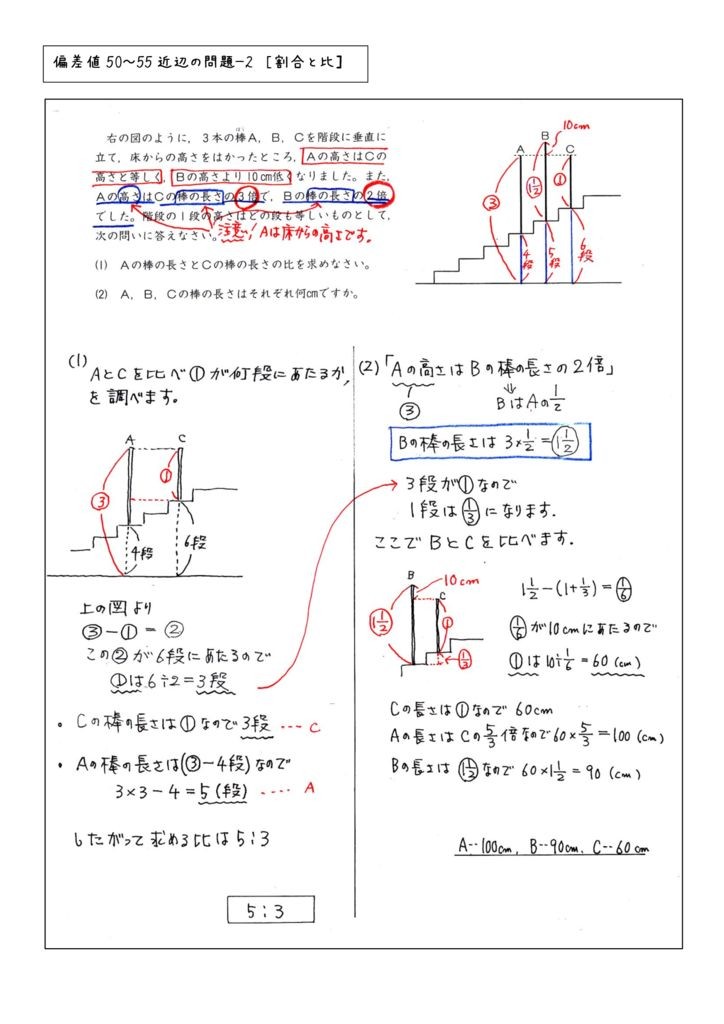 偏差値50～55近辺の問題-2 [割合と比]
右の図のように，3本の棒A，B，Cを階段に垂直に
立て，床からの高さをはかったところ，Aの高さはCの
高さと等しく，Bの高さより10cm低くなりました。また，
Aの高さはCの棒の長さの3倍で，Bの棒の長さの2倍
でした。階段の1段の高さはどの段も等しいものとして，
次の問いに答えなさい。
注意! Aは床からの高さです。
(1) Aの棒の長さとCの棒の長さの比を求めなさい。
(2) A，B，Cの棒の長さはそれぞれ何cmですか。
10cm
A B C
③ 1½ ①
4段 5段 6段
(1)
AとCを比べ①が何段にあたるか，
を調べます。
A C
③ ①
4段 6段
上の図より
③-①=②
この②が6段にあたるので
①は6÷2=3段
・Cの棒の長さは①なので3段 ---- C
・Aの棒の長さは(③-4段)なので
3×3-4=5(段) ---- A
したがって求める比は5:3
5:3
(2)「Aの高さはBの棒の長さの2倍」
③ BはAの½
Bの棒の長さは 3×½=1½
3段が①なので
1段は⅓になります.
ここでBとCを比べます.
B 10cm C
1½ ① ⅓
1½-(1+⅓)=⅙
⅙が10cmにあたるので
①は10÷⅙=60(cm)
Cの長さは①なので60cm
Aの長さはCの5/3倍なので60×5/3=100(cm)
Bの長さは1½なので60×1½=90(cm)
A--100cm, B--90cm, C--60cm